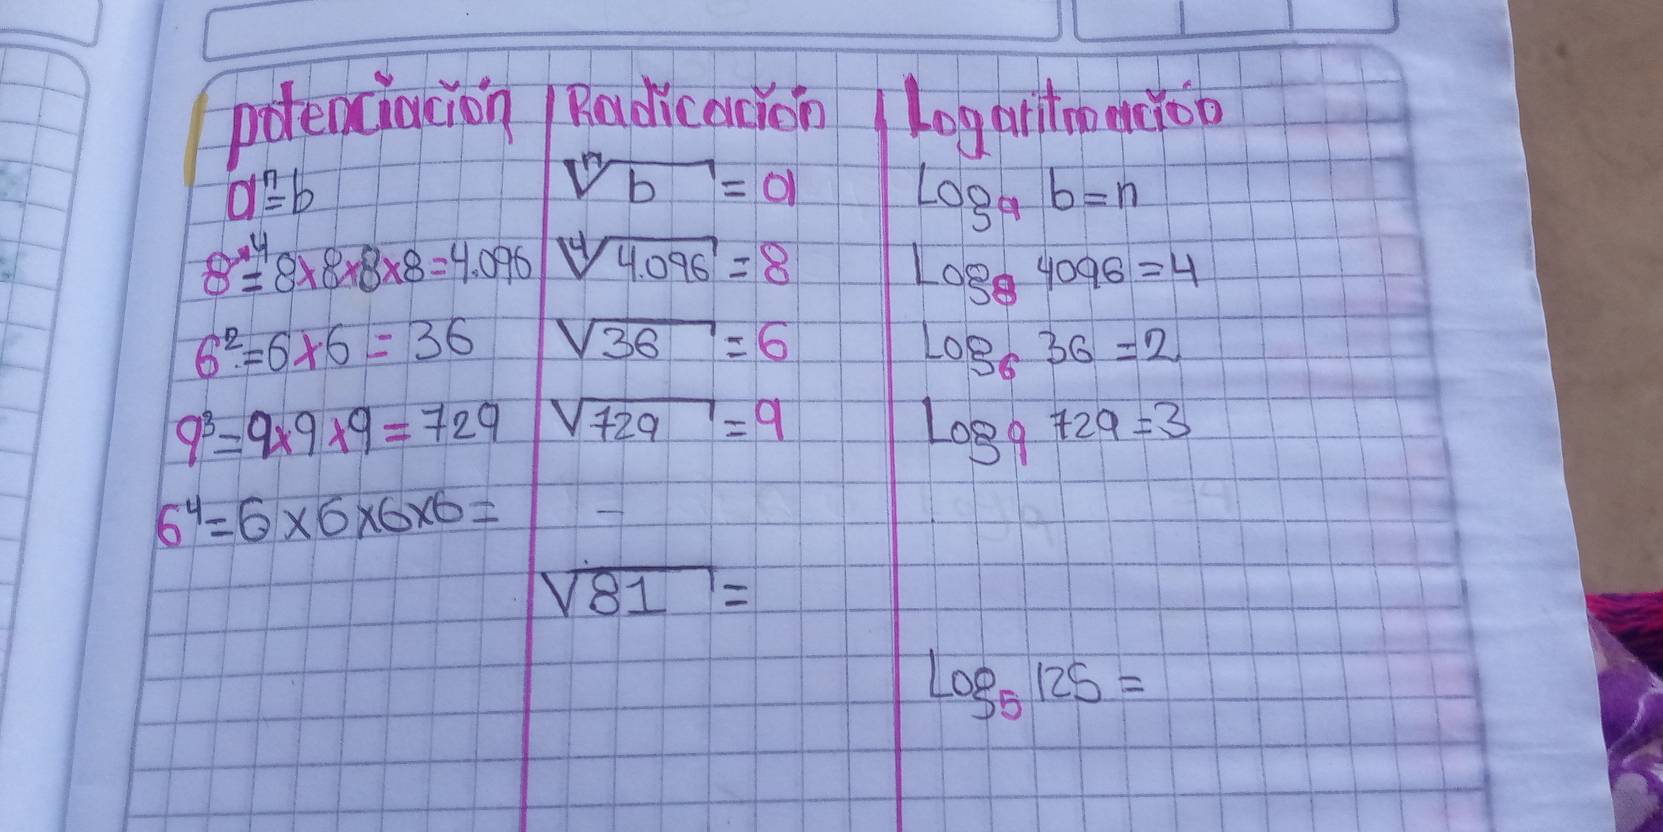 potenciación Radicación Logaritmación
aⁿ=b ⁿ√b = a Log₍a₎ b=n
8⁴=8x8x8x8=4.096 ⁴√4.096 = 8 Log₈ 4096=4
6²=6x6=36 √36 = 6 Log₆ 36=2
9³=9x9x9=729 √729 = 9 Log₉ 729=3
6⁴=6x6x6x6= -
√81 =
Log₅ 125=